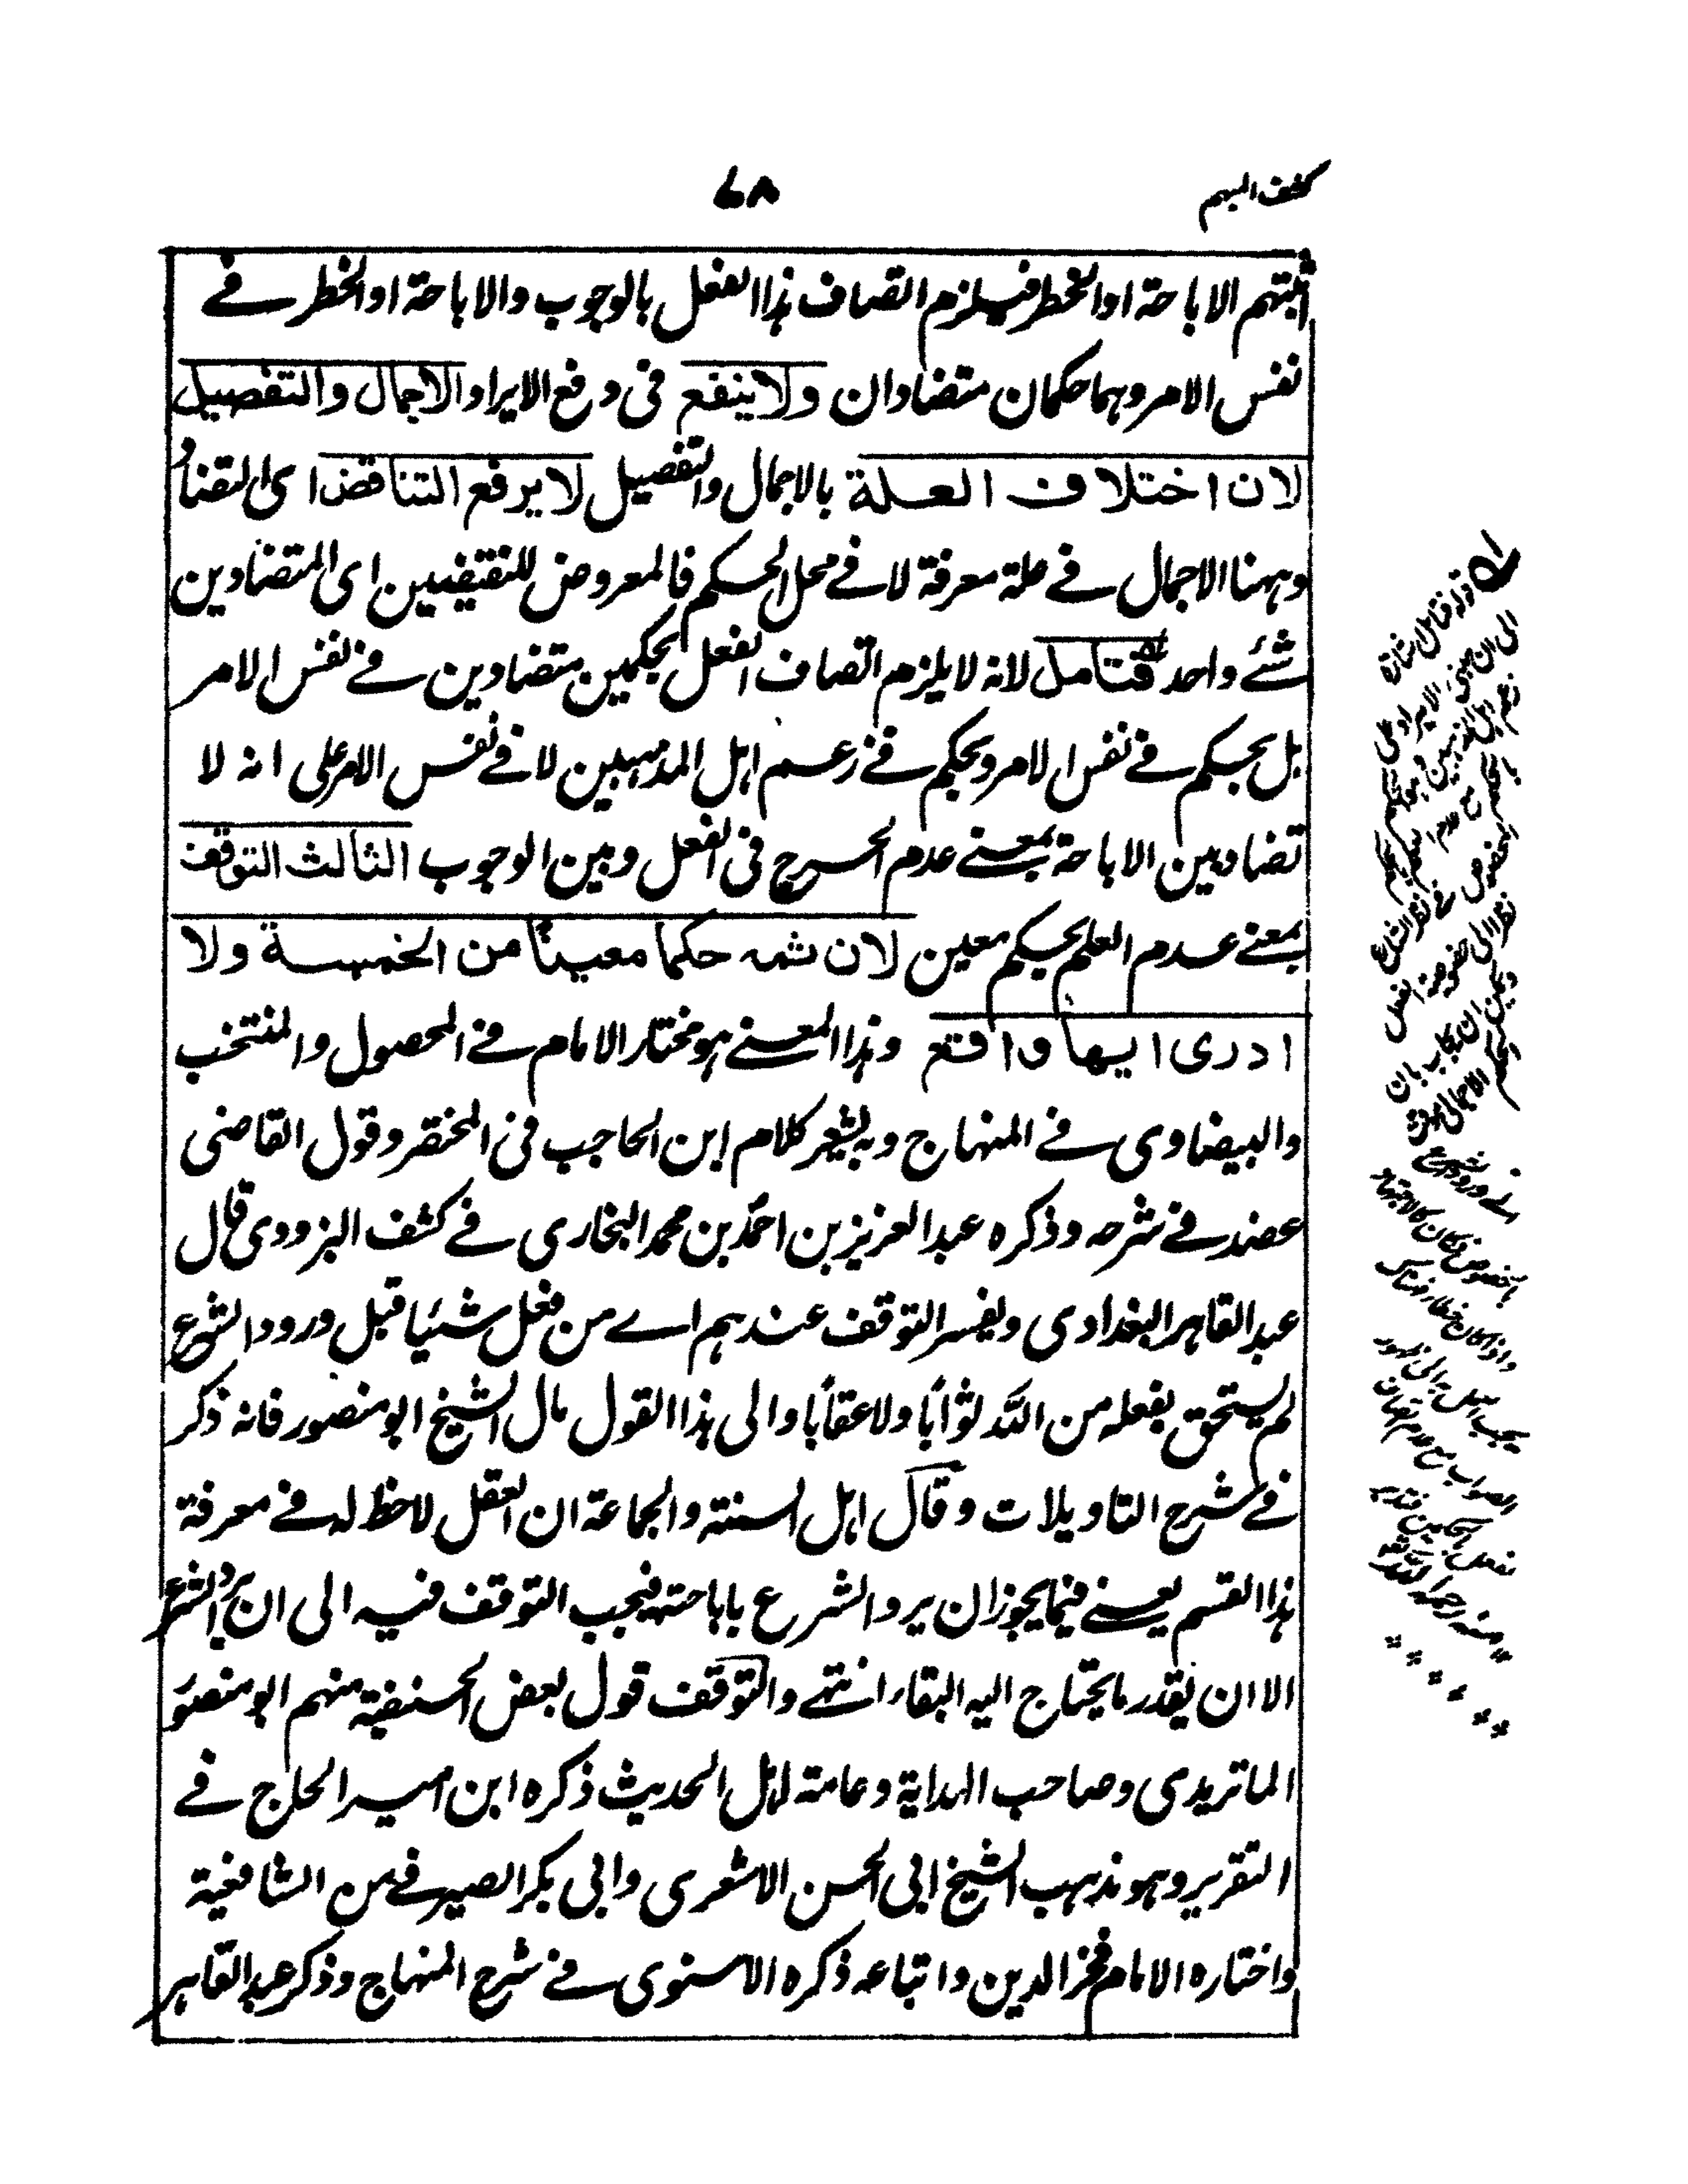 كشف المبهم
٧٨
اثبتهم الاباحة او الخطر فيلزم اتصاف هذا الفعل بالوجوب والاباحة او الخطر في
نفس الامر وهما حكمان متضادان ولا ينفع فى دفع الايراد الاجمال والتفصيل
لان اختلاف العلة بالاجمال والتفصيل لا يرفع التناقض اى التضاد
وههنا الاجمال في علة معرفة لا في محل الحكم فالمعروض للنقيضين اى المتضادين
شئے واحد فتامل لانه لا يلزم اتصاف الفعل بحكمين متضادين في نفس الامر
بل بحكم في نفس الامر وبحكم في زعم اهل المذهبين لا في نفس الامر على انه لا
تضاد بين الاباحة بمعنے عدم الحرج فى الفعل وبين الوجوب الثالث التوقف
بمعنے عدم العلم بحكم معين لان ثمه حكما معينا من الخمسة ولا
ادرى ايها واقع وهذا المعنے هو مختار الامام في المحصول والمنتخب
والبيضاوى في المنهاج وبه يشعر كلام ابن الحاجب فى المختصر وقول القاضى
عضد في شرحه وذكره عبد العزيز بن احمد بن محمد البخارى في كشف البزدوى قال
عبد القاهر البغدادى ويفسر التوقف عندهم اے من فعل شئيا قبل ورود الشرع
لم يستحق بفعله من الله ثوابا ولا عقابا والى هذا القول مال الشيخ ابو منصور فانه ذكر
في شرح التاويلات وقال اهل السنة والجماعة ان العقل لا حظ له في معرفة
هذا القسم يعنے فيما يجوز ان يرد الشرع باباحته فيجب التوقف فيه الى ان يرد الشرع
الا ان يقدر ما يحتاج اليه البقاء انتهے والتوقف قول بعض الحنفية منهم ابو منصور
الماتريدى وصاحب الهداية وعامة اهل الحديث ذكره ابن امير الحاج في
التقرير وهو مذهب الشيخ ابى الحسن الاشعرى وابى بكر الصيرفے من الشافعية
واختاره الامام فخر الدين واتباعه ذكره الاسنوى في شرح المنهاج وذكر عبد القاهر
قوله فتامل اشارة
الى ان مبنى الايراد على
زعم اهل المذهبين